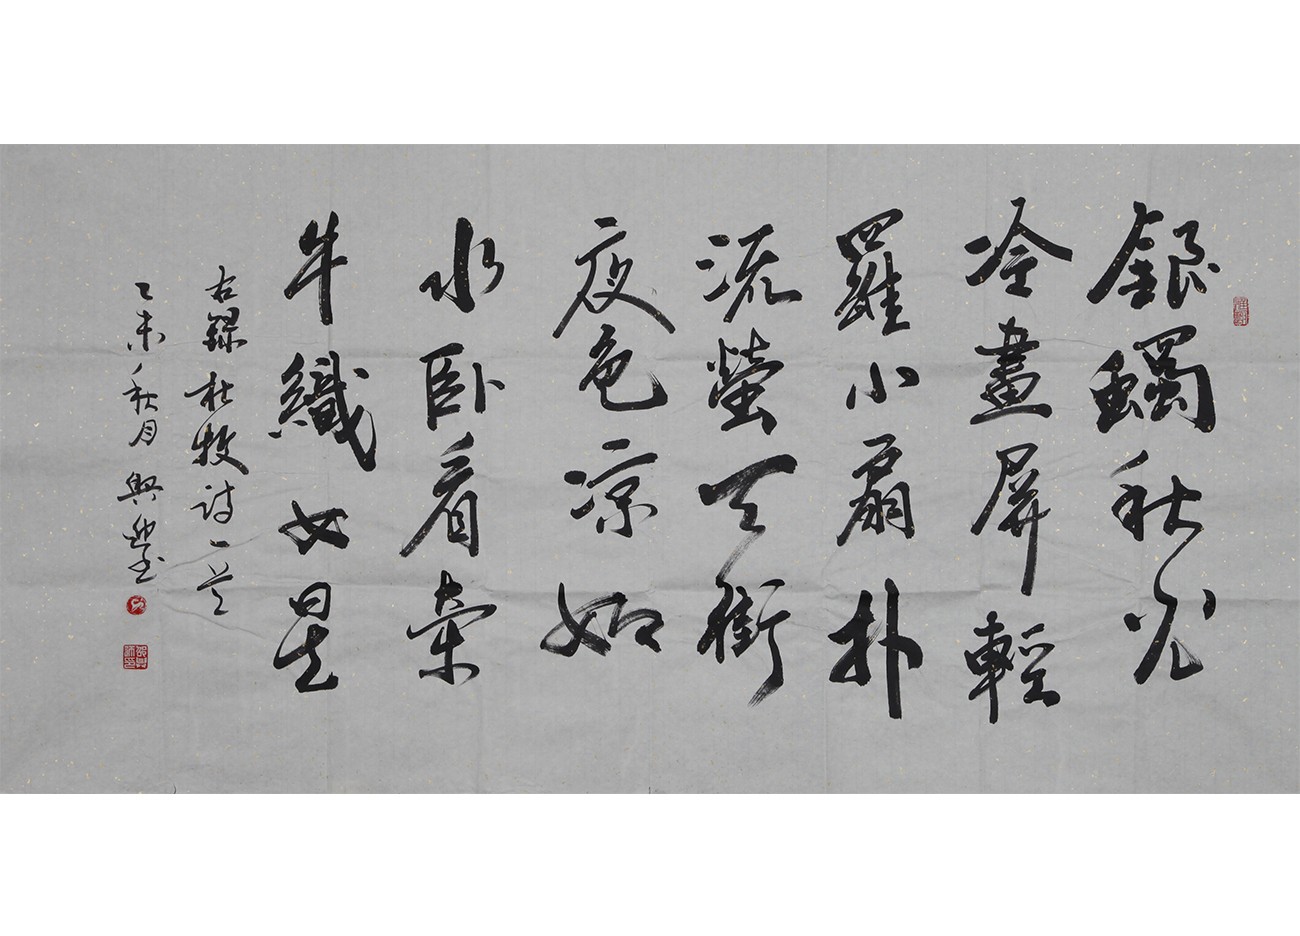 銀蠋秋光
冷畫屏輕
羅小扇扑
流螢天街
夜色凉如
水卧看牽
牛織女星
右録杜牧詩一首
乙未秋月